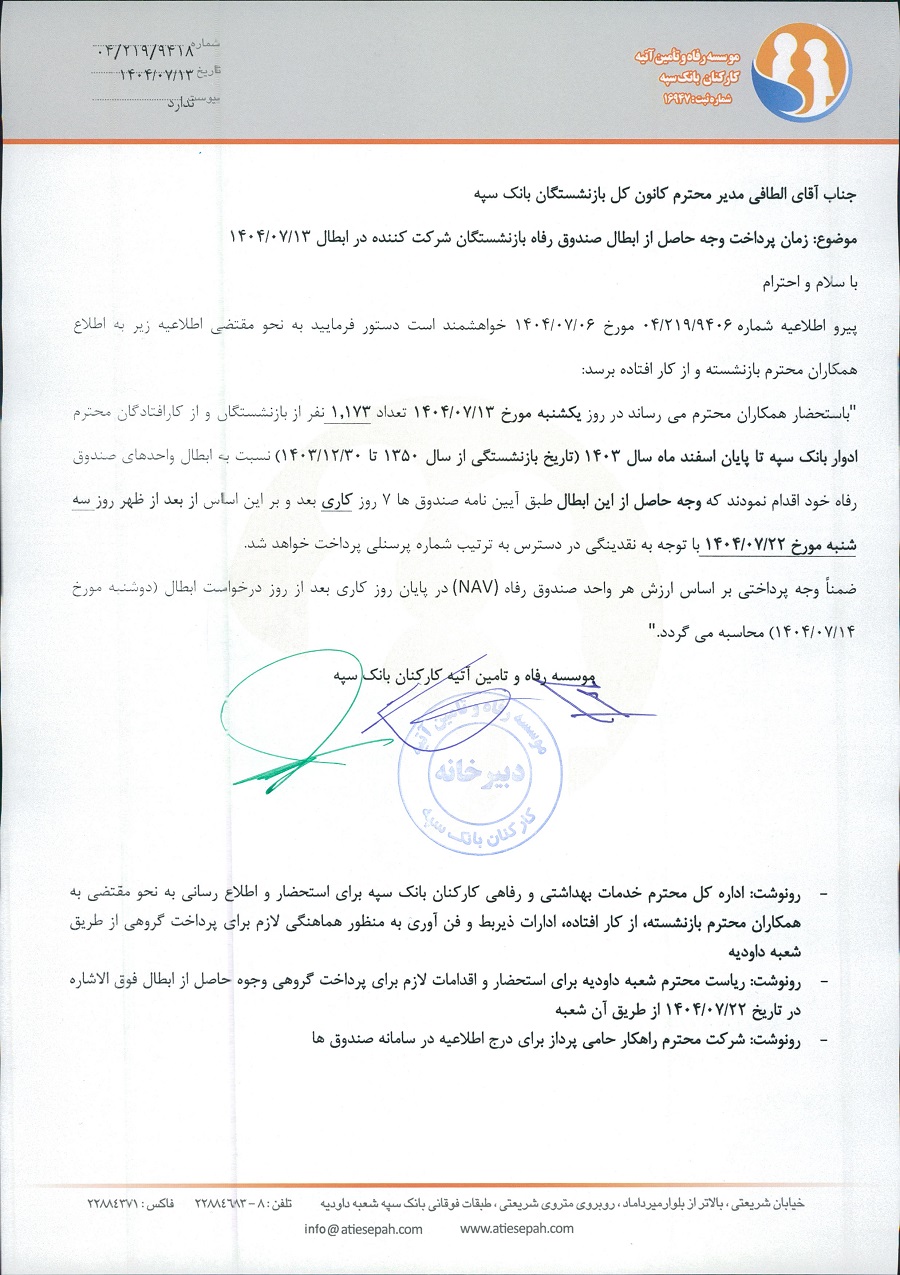 شماره ۰۴/۲۱۹/۹۴۱۸
تاریخ ۱۴۰۴/۰۷/۱۳
پیوست ندارد
موسسه رفاه و تأمین آتیه
کارکنان بانک سپه
شماره ثبت: ۱۶۹۴۷
جناب آقای الطافی مدیر محترم کانون کل بازنشستگان بانک سپه
موضوع: زمان پرداخت وجه حاصل از ابطال صندوق رفاه بازنشستگان شرکت کننده در ابطال ۱۴۰۴/۰۷/۱۳
با سلام و احترام
پیرو اطلاعیه شماره ۰۴/۲۱۹/۹۴۰۶ مورخ ۱۴۰۴/۰۷/۰۶ خواهشمند است دستور فرمایید به نحو مقتضی اطلاعیه زیر به اطلاع
همکاران محترم بازنشسته و از کار افتاده برسد:
"باستحضار همکاران محترم می رساند در روز یکشنبه مورخ ۱۴۰۴/۰۷/۱۳ تعداد ۱,۱۷۳ نفر از بازنشستگان و از کارافتادگان محترم
ادوار بانک سپه تا پایان اسفند ماه سال ۱۴۰۳ (تاریخ بازنشستگی از سال ۱۳۵۰ تا ۱۴۰۳/۱۲/۳۰) نسبت به ابطال واحدهای صندوق
رفاه خود اقدام نمودند که وجه حاصل از این ابطال طبق آیین نامه صندوق ها ۷ روز کاری بعد و بر این اساس از بعد از ظهر روز سه
شنبه مورخ ۱۴۰۴/۰۷/۲۲ با توجه به نقدینگی در دسترس به ترتیب شماره پرسنلی پرداخت خواهد شد.
ضمناً وجه پرداختی بر اساس ارزش هر واحد صندوق رفاه (NAV) در پایان روز کاری بعد از روز درخواست ابطال (دوشنبه مورخ
۱۴۰۴/۰۷/۱۴) محاسبه می گردد."
موسسه رفاه و تامین آتیه کارکنان بانک سپه
موسسه رفاه و تامین آتیه
دبیرخانه
کارکنان بانک سپه
- رونوشت: اداره کل محترم خدمات بهداشتی و رفاهی کارکنان بانک سپه برای استحضار و اطلاع رسانی به نحو مقتضی به
همکاران محترم بازنشسته، از کار افتاده، ادارات ذیربط و فن آوری به منظور هماهنگی لازم برای پرداخت گروهی از طریق
شعبه داودیه
- رونوشت: ریاست محترم شعبه داودیه برای استحضار و اقدامات لازم برای پرداخت گروهی وجوه حاصل از ابطال فوق الاشاره
در تاریخ ۱۴۰۴/۰۷/۲۲ از طریق آن شعبه
- رونوشت: شرکت محترم راهکار حامی پرداز برای درج اطلاعیه در سامانه صندوق ها
خیابان شریعتی، بالاتر از بلوارمیرداماد، روبروی متروی شریعتی، طبقات فوقانی بانک سپه شعبه داودیه تلفن: ۸-۲۲۸۸۴۶۸۳ فاکس: ۲۲۸۸۴۳۷۱
info@atiesepah.com www.atiesepah.com